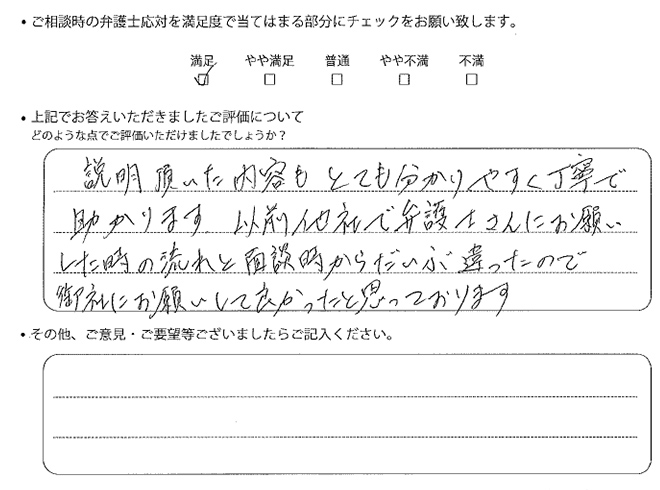 ・ご相談時の弁護士応対を満足度で当てはまる部分にチェックをお願い致します。
満足 やや満足 普通 やや不満 不満
・上記でお答えいただきましたご評価について
どのような点でご評価いただけましたでしょうか？
説明頂いた内容もとても分かりやすく丁寧で
助かります 以前他社で弁護士さんにお願い
した時の流れと面談時からだいぶ違ったので
御社にお願いして良かったと思っております
・その他、ご意見・ご要望等ございましたらご記入ください。